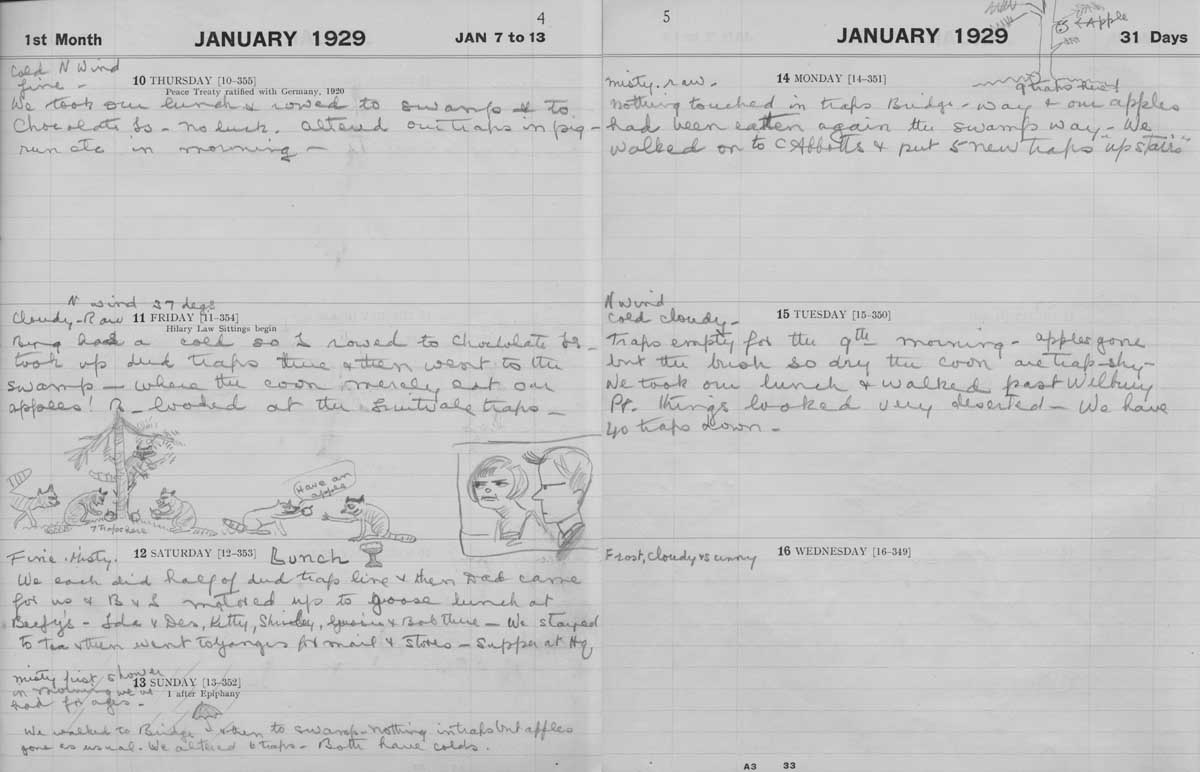 4
1st Month
JANUARY 1929
JAN 7 to 13
Cold N Wind
fine -
10 THURSDAY [10-355]
Peace Treaty ratified with Germany, 1920
We took our lunch & rowed to swamp & to
Chocolate Is - no luck. altered our traps in pig-
run etc in morning -
N wind 27 degs
Cloudy - Raw
11 FRIDAY [11-354]
Hilary Law Sittings begin
had a cold so I rowed to Chocolate Is -
took up dud traps there & then went to the
swamp - where the coon merely eat our
apples! B - looked at the traps -
Have an
apple
7 Traps here
Fine. Misty.
12 SATURDAY [12-353]
Lunch
We each did half of dud trap line & then Dad came
for us & B & I motored up to goose lunch at
Beefy's - Ida & Des, Kitty, Shirley, & Bob there - We stayed
to tea & then went to Ganges for mail & stores - Supper at Hq
misty first shower
in morning we've
had for ages -
13 SUNDAY [13-352]
1 after Epiphany
We walked to Bridge & then to swamp - nothing in traps but apples
gone as usual. We altered 6 traps - Both have colds.
5
JANUARY 1929
31 Days
Apple
misty. raw -
14 MONDAY [14-351]
9 traps here!
nothing touched in traps Bridge - way & our apples
had been eatten again the swamp way - We
walked on to C Abbotts & put 5 new traps "upstairs"
N wind
cold cloudy -
15 TUESDAY [15-350]
Traps empty for the 9th morning - apples gone
but the bush so dry the coon are trap-shy -
We took our lunch & walked past Welbury
Pt. things looked very deserted - We have
40 traps down -
Frost, Cloudy & sunny
16 WEDNESDAY [16-349]
A3 33